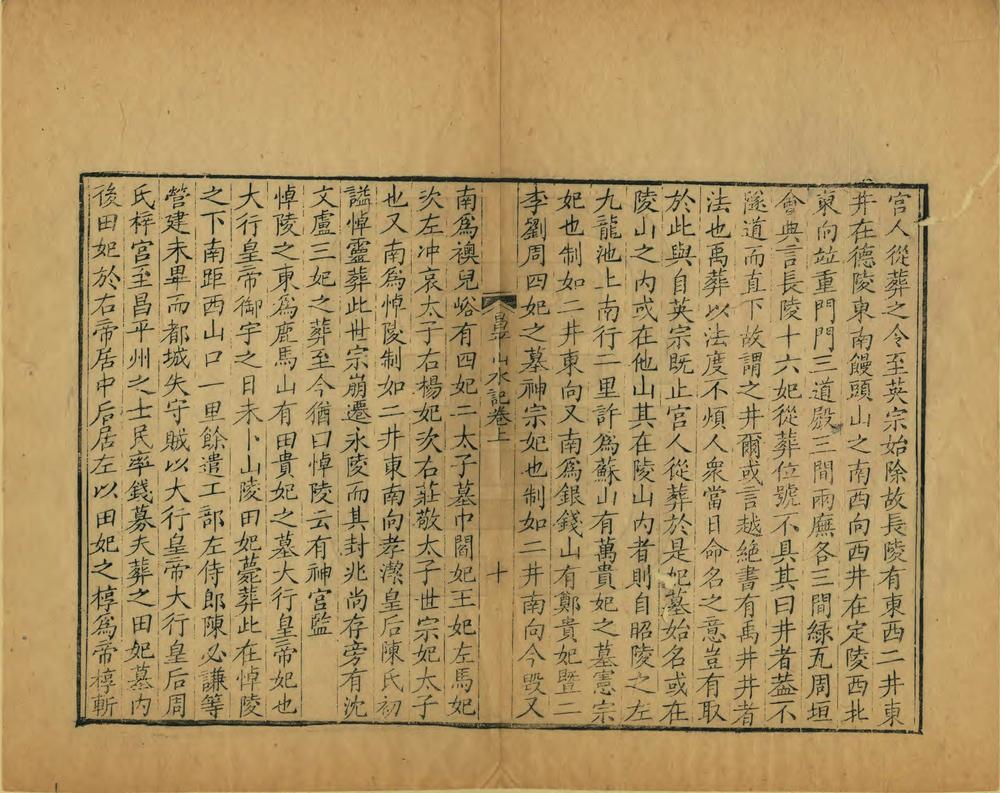 宮人從葬之令至英宗始除故長陵有東西二井東
井在德陵東南饅頭山之南西向西井在定陵西北
東向竝重門門三道殿三間兩廡各三間綠瓦周垣
會典言長陵十六妃從葬位號不具其曰井者葢不
隧道而直下故謂之井爾或言越絶書有禹井井者
法也禹葬以法度不煩人衆當日命名之意豈有取
於此與自英宗旣止宮人從葬於是妃墓始名或在
陵山之內或在他山其在陵山內者則自昭陵之左
九龍池上南行二里許爲蘇山有萬貴妃之墓憲宗
妃也制如二井東向又南爲銀錢山有鄭貴妃曁二
李劉周四妃之墓神宗妃也制如二井南向今毀又
昌平山水記卷上
十
南爲襖兒峪有四妃二太子墓巾閻妃王妃左馬妃
次左冲哀太子右楊妃次右莊敬太子世宗妃太子
也又南爲悼陵制如二井東南向孝潔皇后陳氏初
謚悼靈葬此世宗崩遷永陵而其封兆尚存旁有沈
文盧三妃之葬至今猶曰悼陵云有神宮監
悼陵之東爲鹿馬山有田貴妃之墓大行皇帝妃也
大行皇帝御宇之日未卜山陵田妃薨葬此在悼陵
之下南距西山口一里餘遣工部左侍郎陳必謙等
營建未畢而都城失守賊以大行皇帝大行皇后周
氏梓宮至昌平州之士民率錢募夫葬之田妃墓內
後田妃於右帝居中后居左以田妃之椁爲帝椁斬